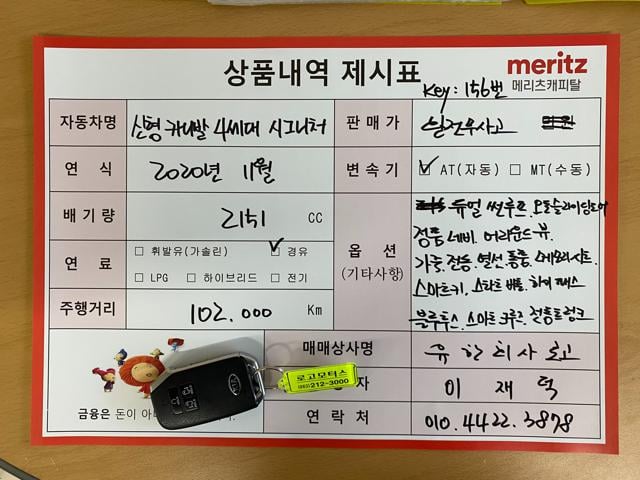 상품내역 제시표
meritz
메리츠캐피탈
Key: 156번
자동차명 신형 카니발 4세대 시그니처
판매가 실전무사고
연 식 2020년 11월
변속기 ☑ AT(자동) □ MT(수동)
배기량 2151 CC
옵 션
(기타사항)
듀얼 썬루프, 오토슬라이딩도어
정품 네비. 어라운드 뷰.
가죽. 전동. 열선. 통풍. 메모리시트.
스마트키. 스타트 버튼. 하이패스
블루투스. 스마트 크루즈. 전동트렁크
연 료 □ 휘발유(가솔린) ☑ 경유
□ LPG □ 하이브리드 □ 전기
주행거리 102.000 Km
매매상사명 유한회사 로고
자 이재덕
연락처 010.4422.3878
로고모터스
212-3000
KIA
금융은 돈이 아